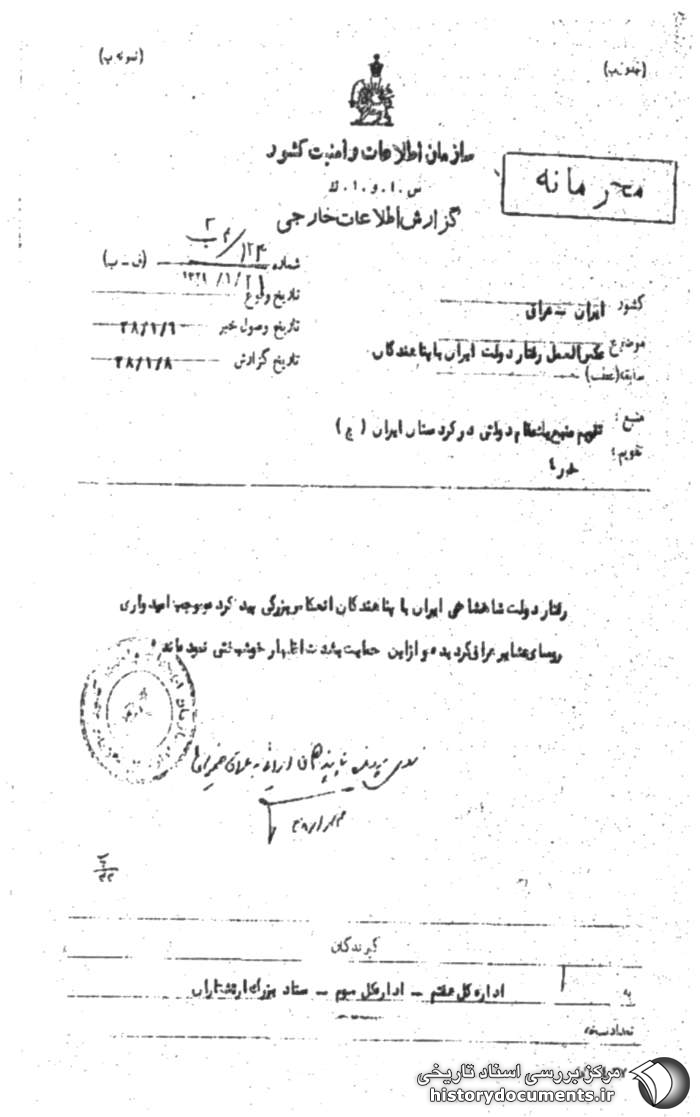 (نمونه ب)
(نمونه ب)
سازمان اطلاعات و امنیت کشور
س . ا . و . ا . ک
محرمانه
گزارش اطلاعات خارجی
شماره (ف - ب)
تاریخ وقوع
کشور ایران - عراق
تاریخ وصول خبر ۲۸/۱/۶
موضوع عکس‌العمل رفتار دولت ایران با پناهندگان
تاریخ گزارش ۲۸/۱/۸
سابقه (عطف)
منبع :
تقویم منبع یک مقام دولتی در کردستان ایران ( ج )
تقویم :
خبر ٤
رفتار دولت شاهنشاهی ایران با پناهندگان انعکاس بزرگی پیدا کرده موجب امیدواری
روسای عشایر عراقی گردیده و از این حمایت بشدت اظهار خوشبختی نموده‌اند
گیرندگان
به اداره کل هفتم - اداره کل سوم - ستاد بزرگ ارتشتاران
تعداد نسخه
مرکز بررسی اسناد تاریخی
historydocuments.ir